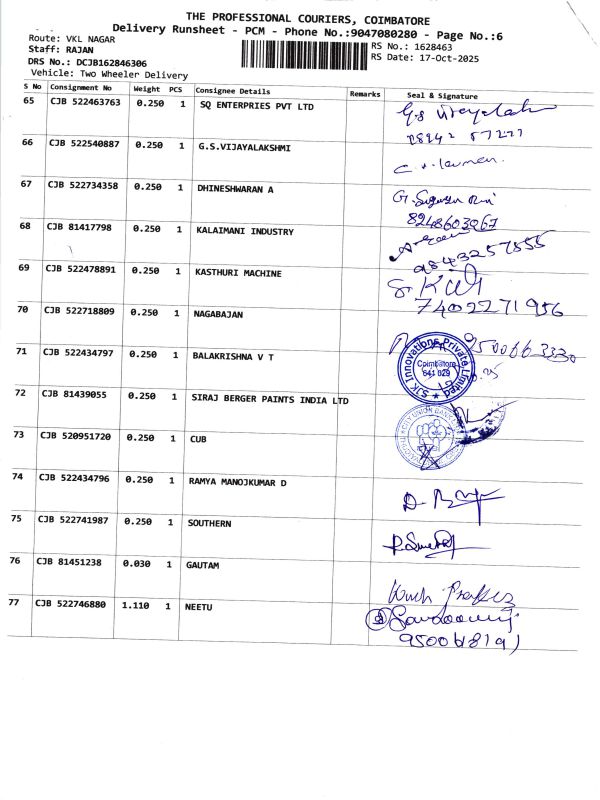 THE PROFESSIONAL COURIERS, COIMBATORE
Delivery Runsheet - PCM - Phone No.:9047080280 - Page No.:6
Route: VKL NAGAR
RS No.: 1628463
Staff: RAJAN
RS Date: 17-Oct-2025
DRS No.: DCJB162846306
Vehicle: Two Wheeler Delivery
S No Consignment No Weight PCS Consignee Details Remarks Seal & Signature
65 CJB 522463763 0.250 1 SQ ENTERPRIES PVT LTD
66 CJB 522540887 0.250 1 G.S.VIJAYALAKSHMI
67 CJB 522734358 0.250 1 DHINESHWARAN A
8248603067
68 CJB 81417798 0.250 1 KALAIMANI INDUSTRY
9843257855
69 CJB 522478891 0.250 1 KASTHURI MACHINE
7402271956
70 CJB 522718809 0.250 1 NAGABAJAN
9500663330
71 CJB 522434797 0.250 1 BALAKRISHNA V T
SJK Innovations Private Limited
Coimbatore
641 029
72 CJB 81439055 0.250 1 SIRAJ BERGER PAINTS INDIA LTD
73 CJB 520951720 0.250 1 CUB
CITY UNION BANK
74 CJB 522434796 0.250 1 RAMYA MANOJKUMAR D
75 CJB 522741987 0.250 1 SOUTHERN
76 CJB 81451238 0.030 1 GAUTAM
77 CJB 522746880 1.110 1 NEETU
9500618191